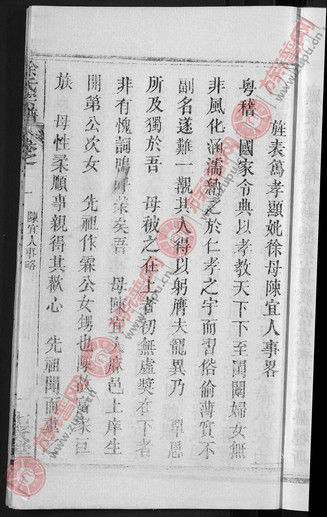 旌表篤孝顯妣徐母陳宜人事畧
粤稽 國家令典以孝教天下下至閨闈婦女無
非風化涵濡納之於仁孝之宇而習俗偷薄實不
副名遂難一覯其人得以躬膺夫寵異乃 覃恩
所及獨於吾 母被之在上者初無虛奬在下者
非有愧詞嗚呼榮矣吾 母陳宜人麻邑上庠生
開第公次女 先祖作霖公女甥也陳故富家巨
族 母性柔順事親得其歡心 先祖聞而
徐氏宗譜
陳宜人事略
族譜网
www.zupu.cn